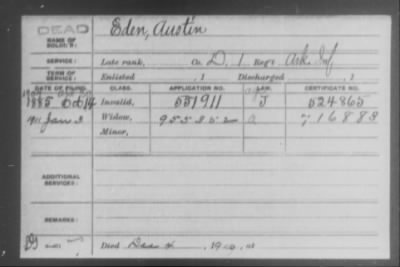 DEAD
Eden, Austin
NAME OF SOLDIER:
SERVICE: Late rank, Co. D, 1 Reg't Ark Inf
TERM OF SERVICE: Enlisted , 1 Discharged , 1
DATE OF FILING. CLASS. APPLICATION NO. LAW. CERTIFICATE NO.
1885 Oct 14 Invalid, 551911 J 524865
911 Jan 3 Widow, 955852 716888
Minor,
ADDITIONAL SERVICES:
REMARKS:
Died